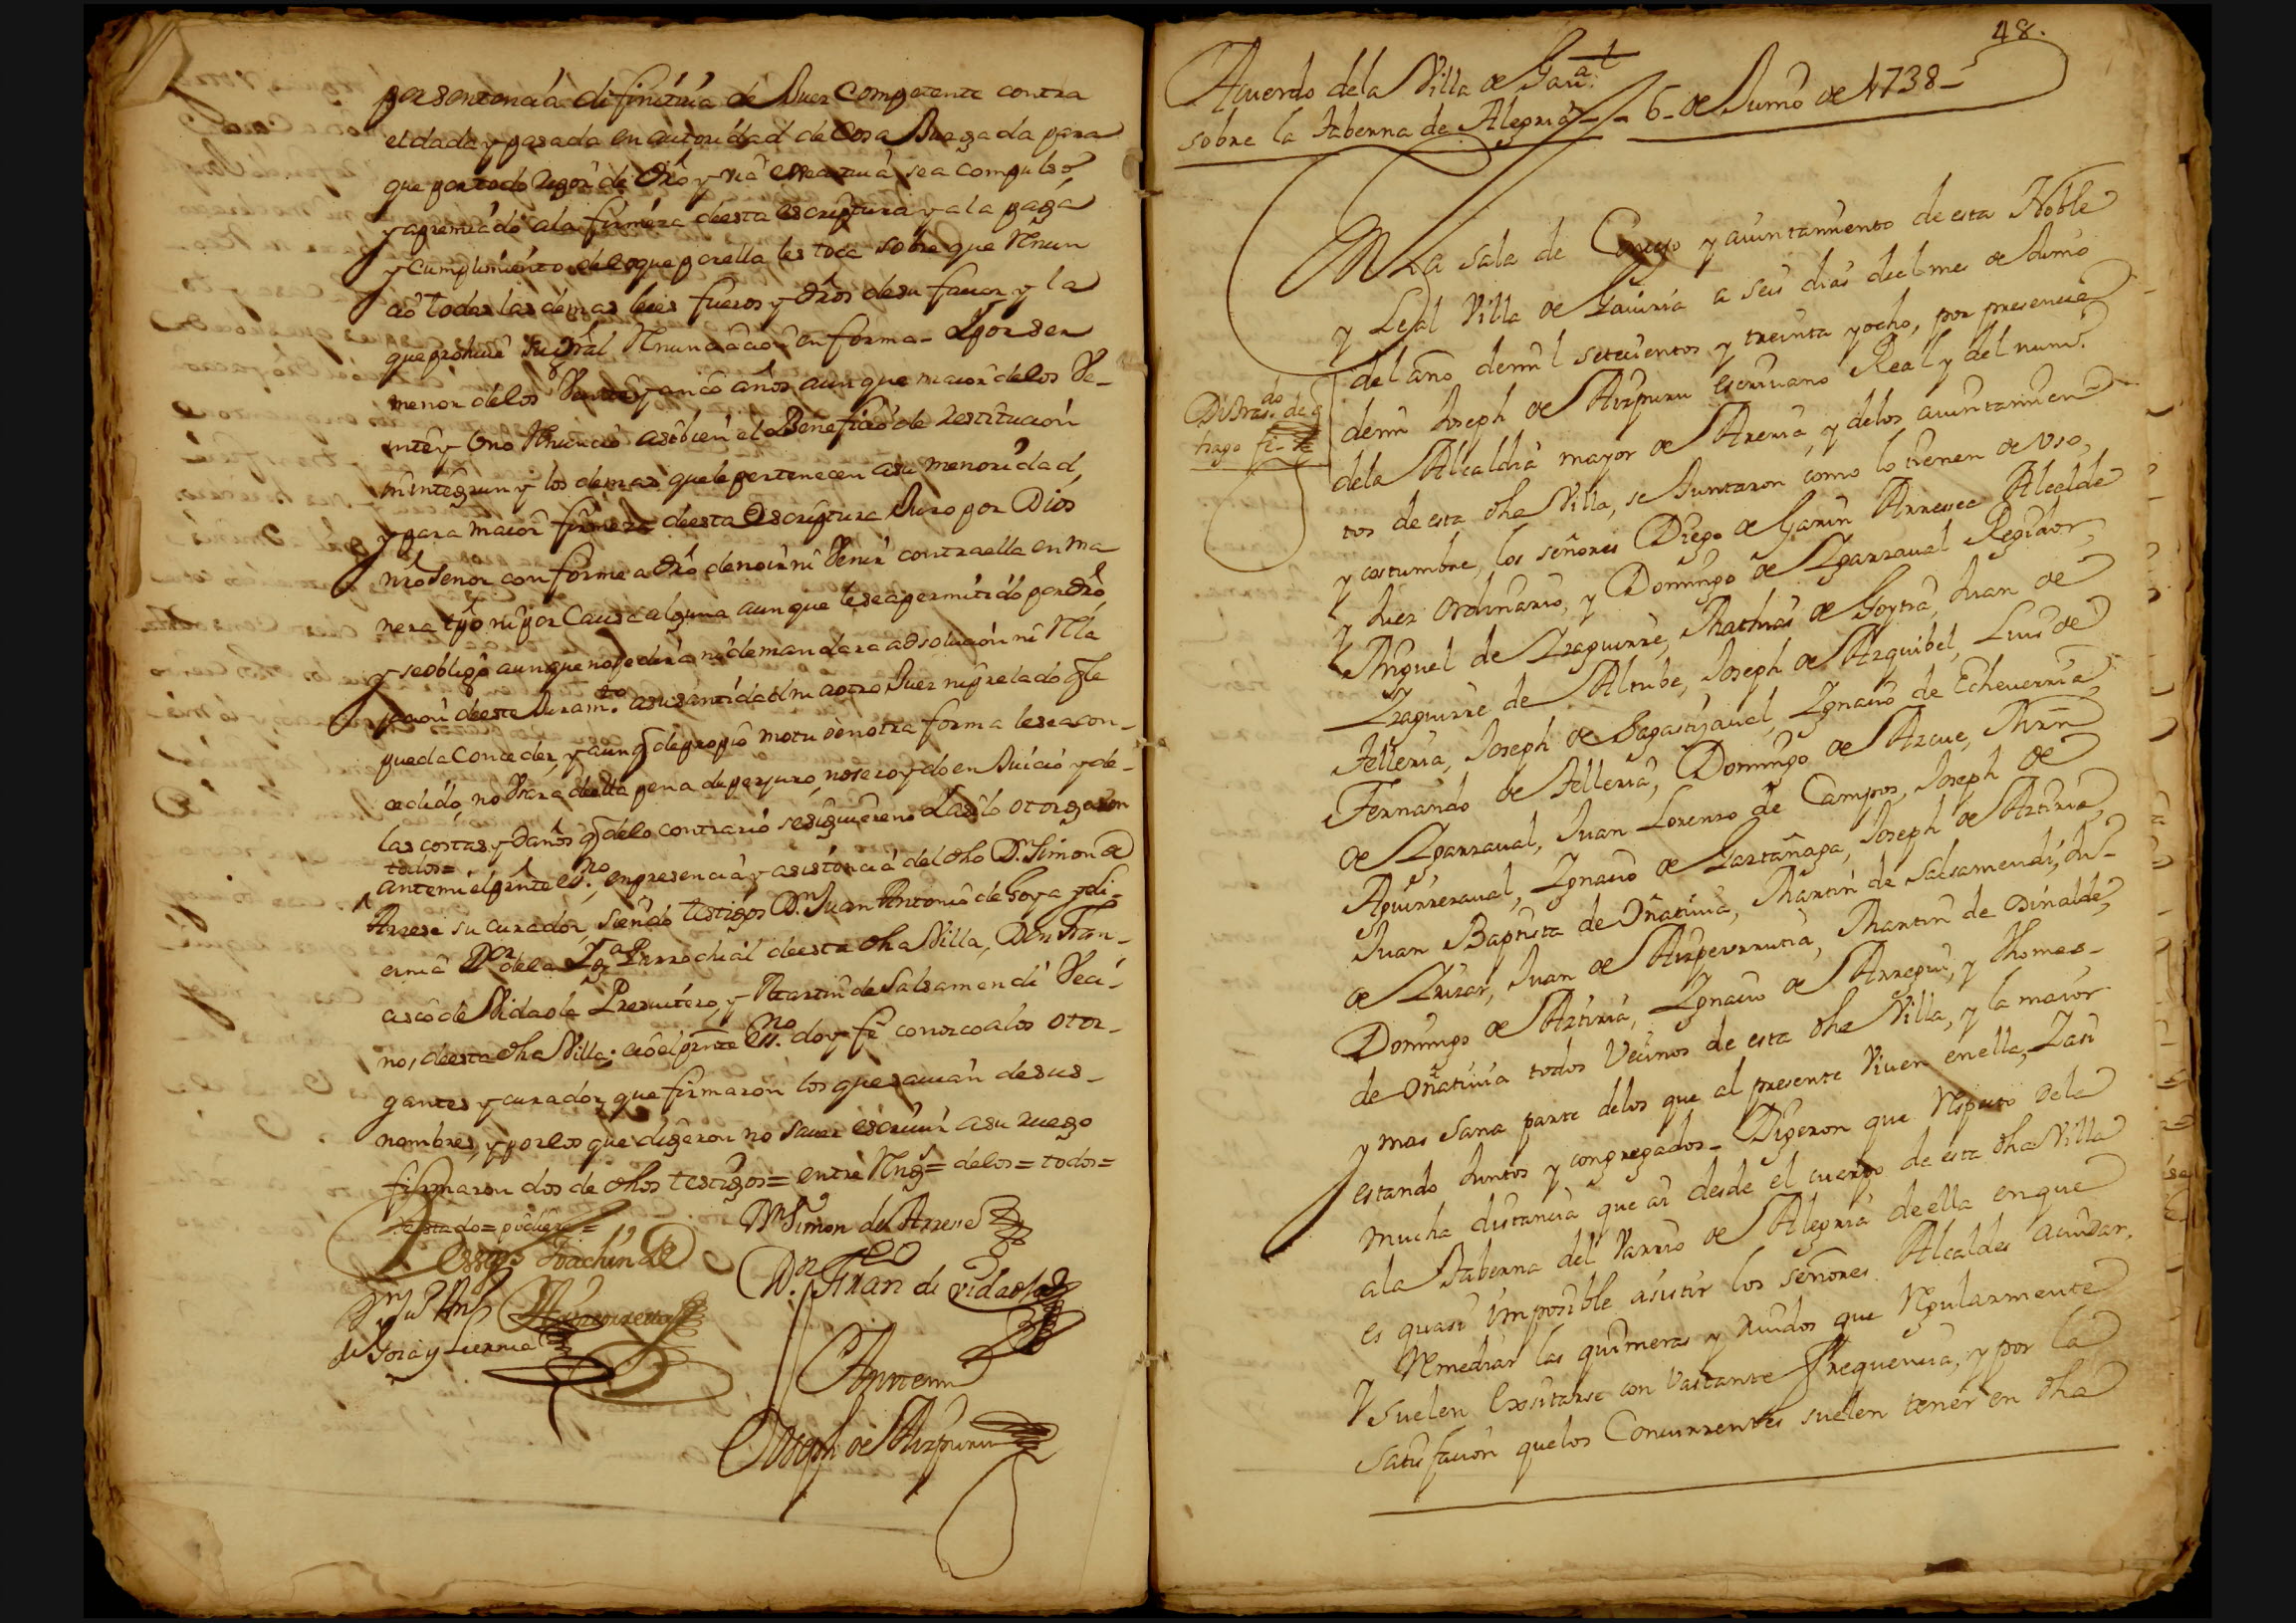 por sentencia difinitiva de Juez Competente contra
el dada y pasada en autoridad de Cosa Juzgada para
que por todo rigor de dro y via executiva sea compulso
y apremiado ala firmeza desta escriptura y a la paga
y cumplimiento delo que por ella les toca sobre que Renun
ció todas las demas leies fueros y dros de su favor y la
que prohive la gral Renunciacion en forma - Y por ser
menor de los Veinte y cinco años aunque maior delos Ve-
inte y Uno Renunció asibien el Beneficio de restitucion
in integrun y los demas que le pertenecen a su menoridad,
y para maior firmeza desta Escriptura Juro por Dios
nro Senor conforme a dro de no ir ni Venir contra ella en ma
nera tpo ni por Causa alguna aunque le sea permitido por dro
y se obligo aunque no pedira ni demandara absolucion ni Rela
jacion deeste Juram.to a su santidad ni a otro Juez ni prelado q le
pueda Conceder, y aunq de propio motu o en otra forma le sea con-
cedido no Usara della pena de perjuro, no ser oydo en Juicio y de-
las costas y daños q delo contrario se siguieren Y asi lo otorgaron
todos=
ante mi el prnte es.no, en presencia y asistencia del dho Dn. Simon de
Arrese su curador, siendo testigos Dn. Juan Antonio de Goya y di-
ernia Ror dela Yga Parrochial deesta dha Villa, Don Fran-
cisco de Vidaola Presvitero, y Martin de Salsamendi Veci-
nos, deesta dha Villa; e io el prnte Ess.no doy fe conozco a los otor-
gantes y curador, que firmaron los que savian de sus-
nombres, y por los que digeron no saver escrivir a su ruego
firmaron dos de dhos testigos= entre Rengs= delos= todos=
testado= pudiere=
Dn Simon de Arrese
Joseph Joachin de
Dn. Fran de vidaola
Dn Ju Anto
de Goia y
Ante mi
Joseph de Aizpuru
48.
Acuerdo dela Villa de Gav.a
sobre la taberna de Alegria - - 6 - de Junio de 1738 -
En La sala de Concejo y aiuntamiento de esta Noble
y Leal Villa de Gaviria a seis dias del mes de Junio
del año de mil setecientos y treinta y ocho, por presencia
de mi Joseph de Aizpuru escrivano Real y del num.o
Di tras.do de q
hago fe-
dela Alcaldia mayor de Areria, y delos aiuntamien
tos de esta dha Villa, se Juntaron como lo tienen de uso,
y costumbre, los señores Diego de Garin Arrese Alcalde
y Juez ordinario, y Domingo de Ygarzaval Regidor,
Miguel de Yzaguirre, Mathias de Goytia, Juan de
Yzaguirre de Altube, Joseph de Azquibel, Luis de
Telleria, Joseph de Sagastizavel, Ygnacio de Echeverria,
Fernando de Telleria, Domingo de Azcue, Mrn
de Ygarzaval, Juan Lorenzo de Campos, Joseph de
Aguirrezaval, Ygnacio de Gaztañaga, Joseph de Aztiria,
Juan Baptista de Oñativia, Martin de Salsamendi, Ju-
de Yrizar, Juan de Aizpeurrutia, Martin de
Domingo de Aztiria, Ygnacio de Arregui, y Thomas-
de Oñativia todos Vecinos de esta dha Villa, y la maior
y mas sana parte delos que al presente Viven en ella, Y asi
estando Juntos y congregados - Digeron que Respecto dela
mucha distancia que ai desde el cuerpo de esta dha Villa
ala taberna del Varrio de Alegria de ella en que
es quasi imposible asistir los señores Alcaldes a cuidar,
y Remediar las quimeras y Ruidos que Regularmente
suelen exsitarse con bastante Frequencia, y por la
satisfacion que los Concurrentes suelen tener en dha